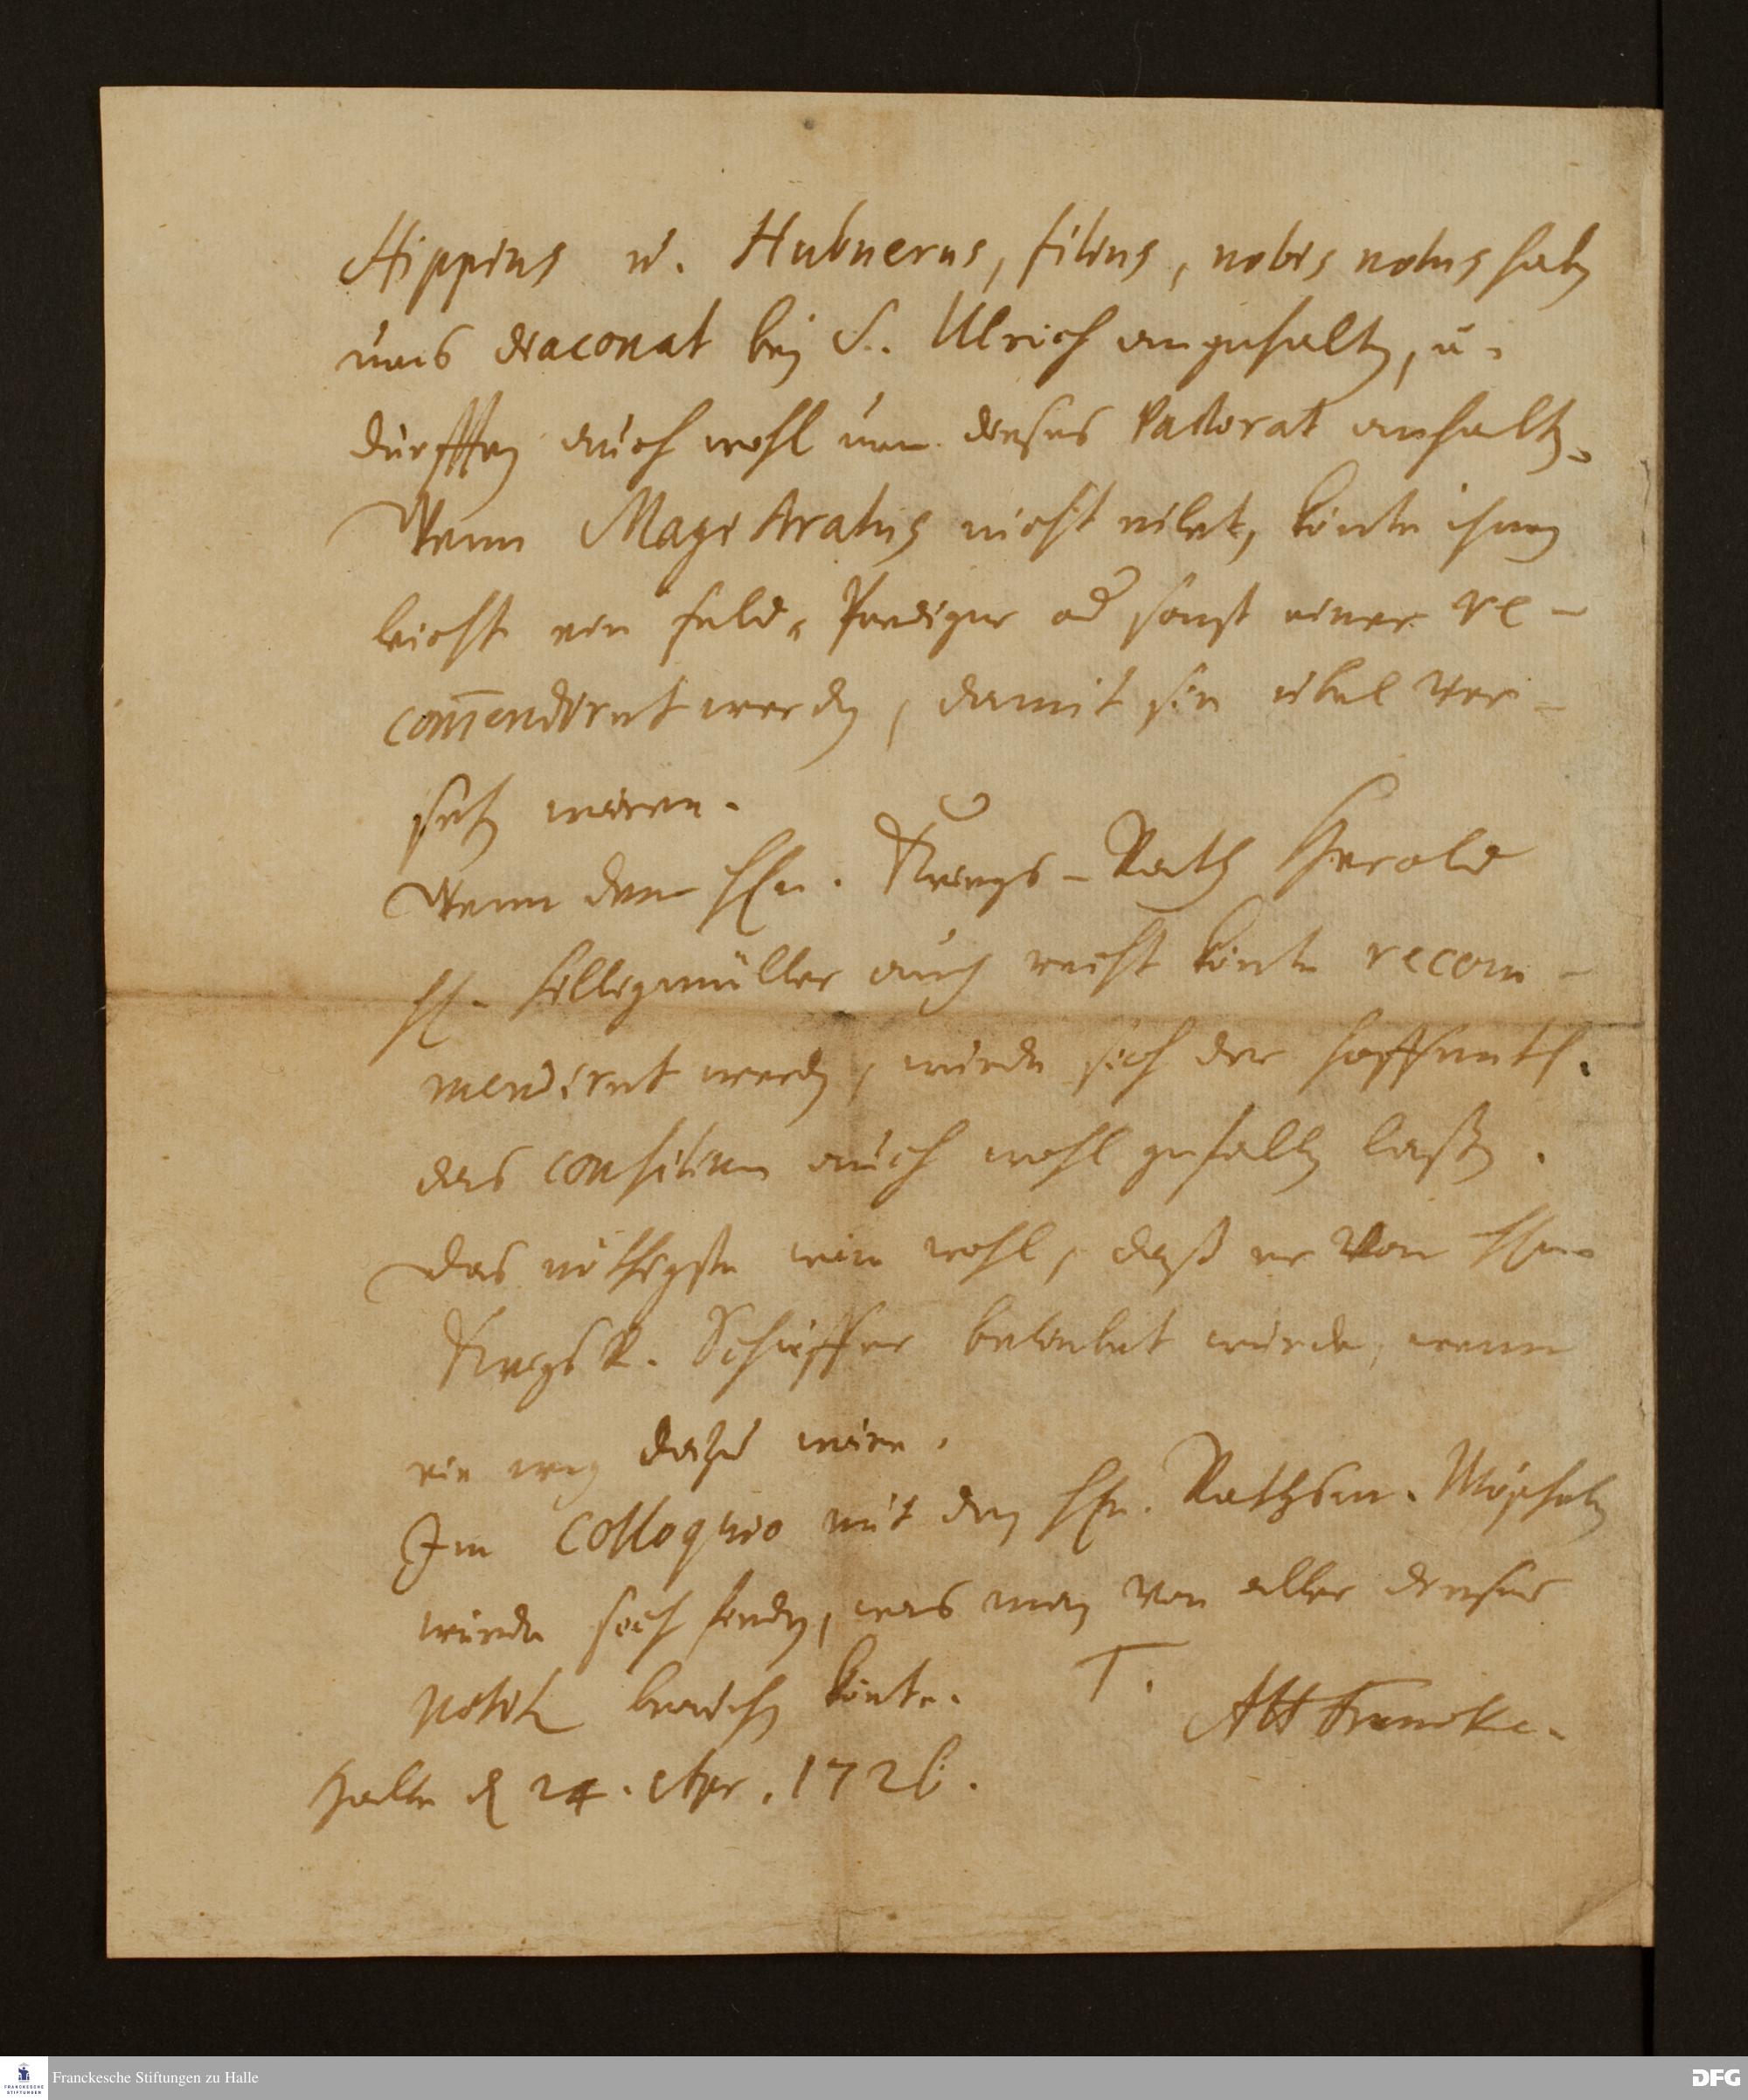 Hippius u. Hubnerus, filius, nobis notus haben
ums diaconat bey S. Ulrich angehalten, u.
dürfften auch wohl um dieses Pastorat anhalten.
Wenn Magistratus nicht eilet, könte ihnen
leicht ein Feld-Prediger od sonst einer re-
com̄endiret werden, damit sie übel ver-
sehen wären.
Wenn dem Hn. Kriegs-Rath Herold
H. auch recht könte recom-
mendiret werden, würde sich der hoffentl.
das consilium auch wohl gefallen laßen.
Das nöthigste wäre wohl, daß er von Hn.
KriegsR. Schäffer beliebet würde, wenn
ein weg dazu wäre.
Im Colloquio mit dem Hn. Rathsm. Möschel
würde sich finden, was man von aller dieser
Notitz brauchen könte. T. AHFrancke.
Halle d 24. Apr. 1726.
Franckesche Stiftungen zu Halle
FRANCKESCHE STIFTUNGEN
DFG